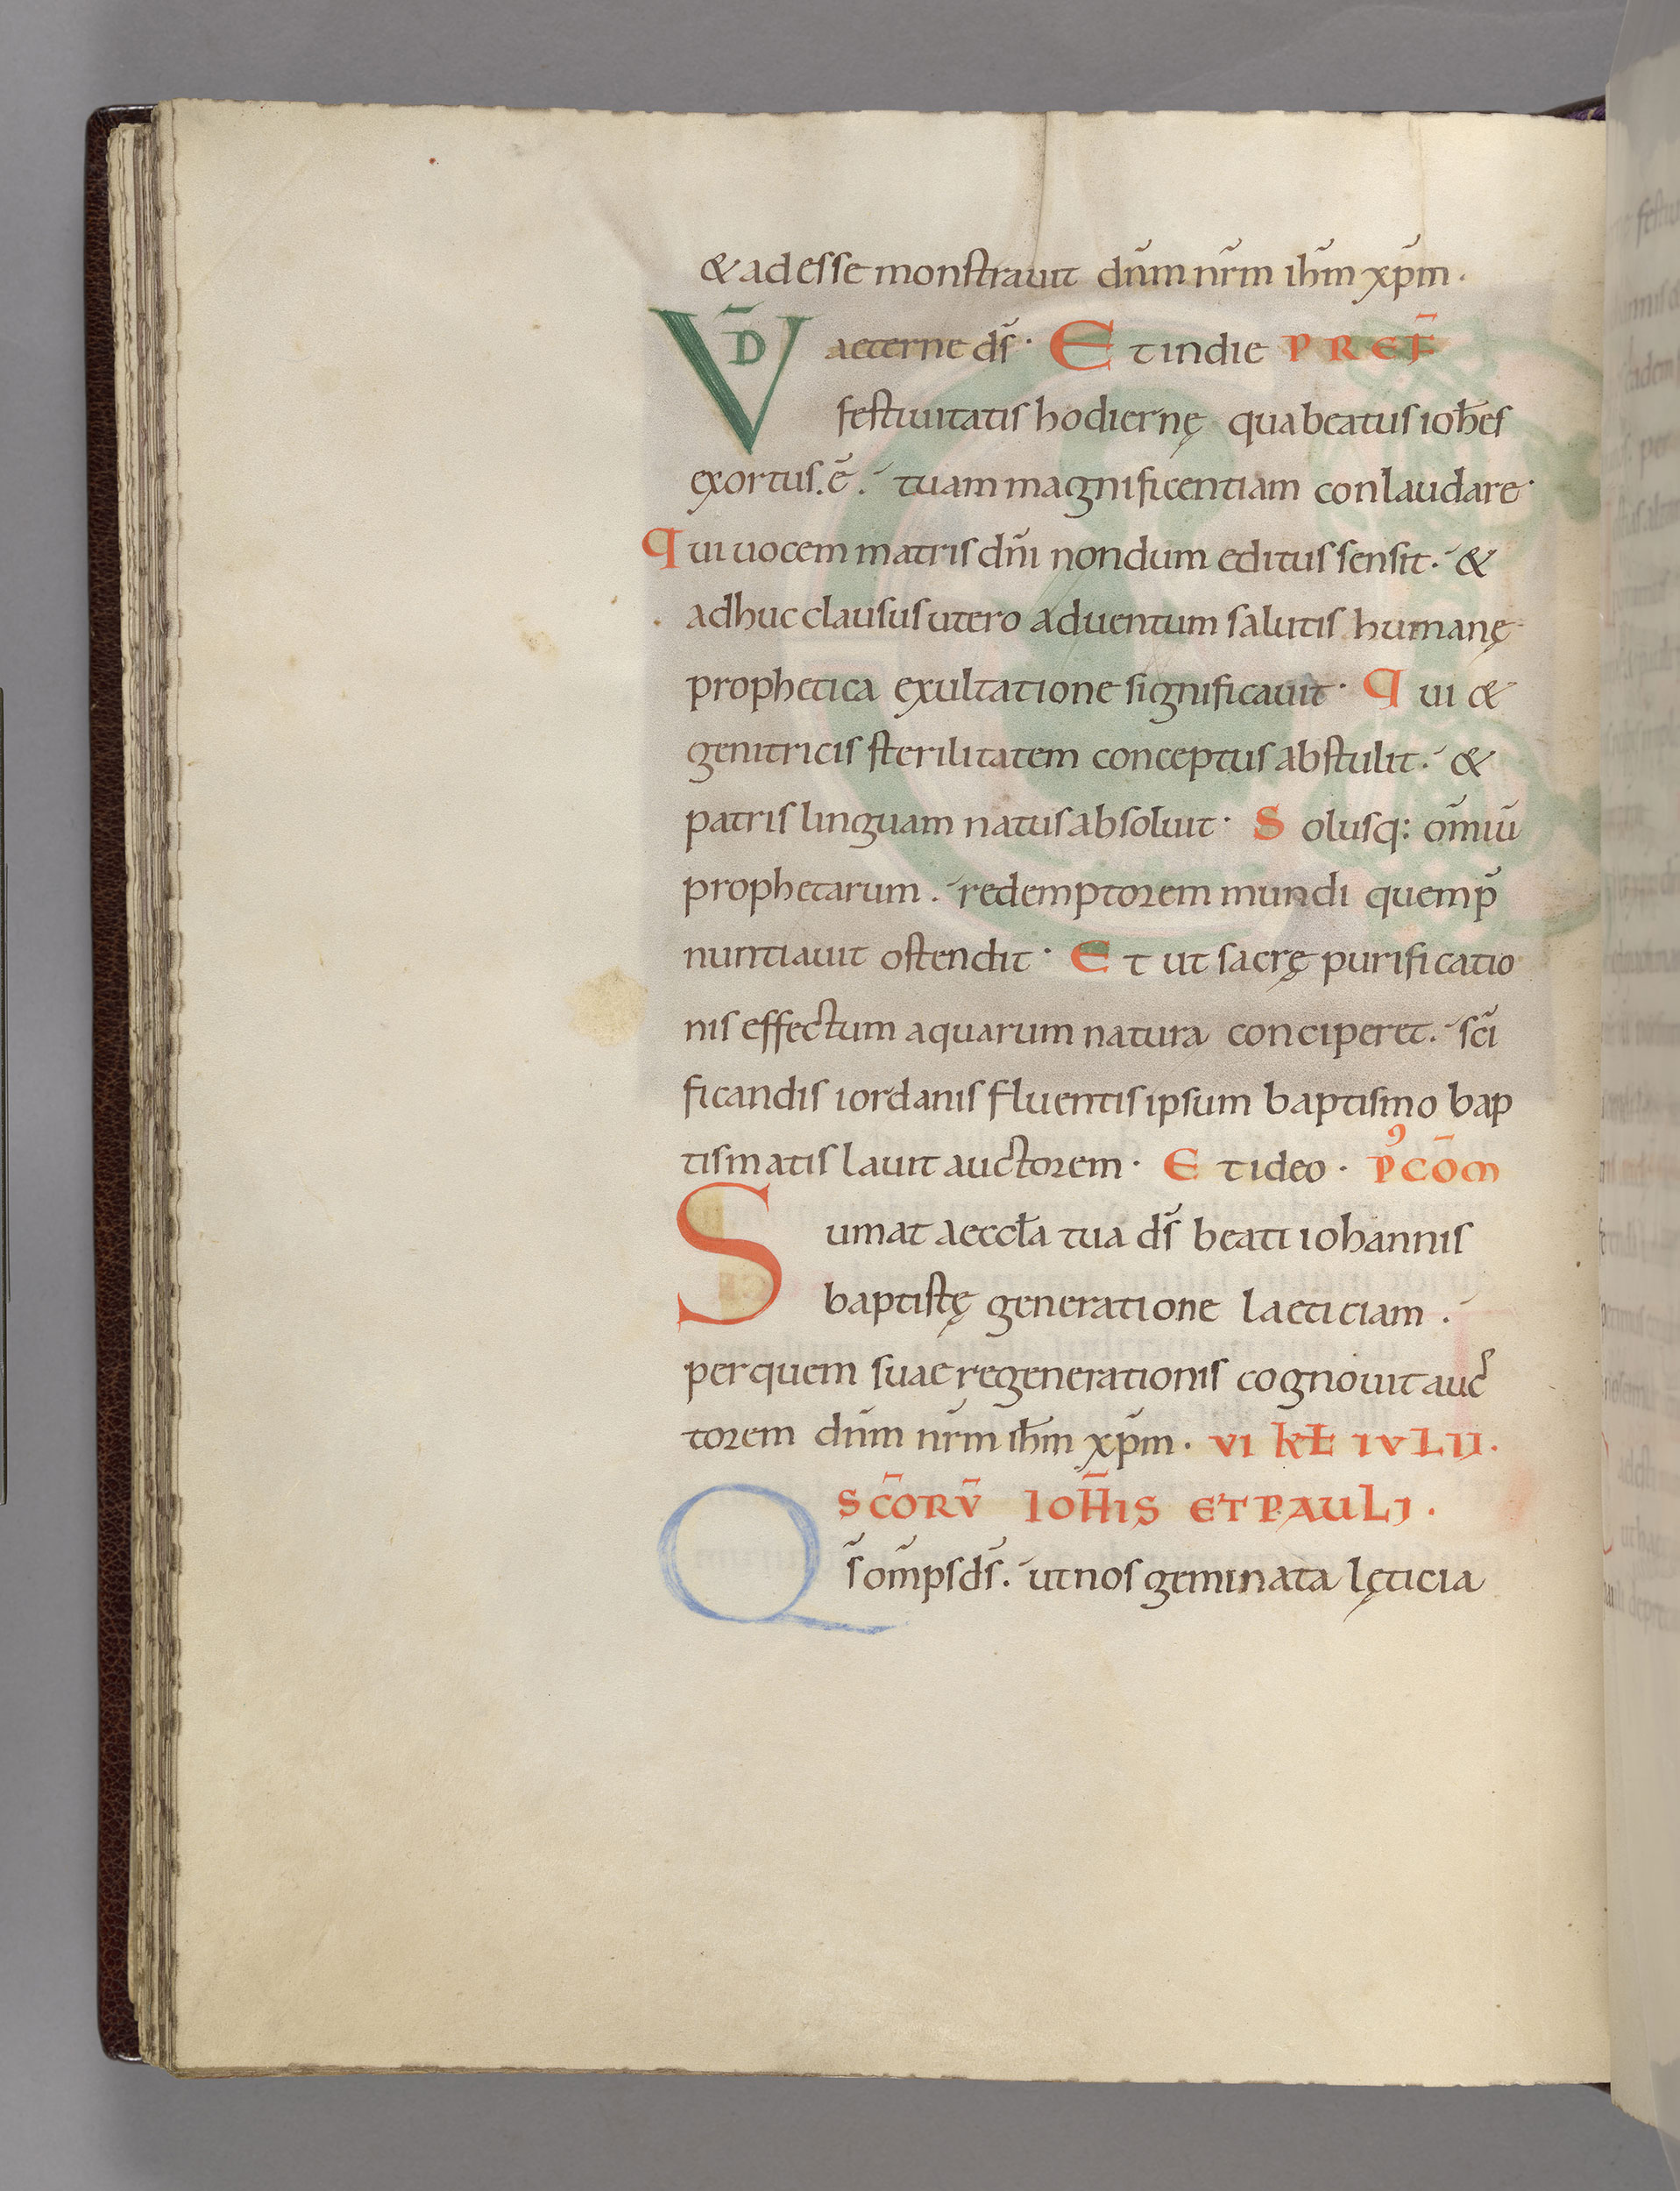 & adesse monstrauit dn̄m nr̄m ih̄m xp̄m.
VD̄ aeterne ds̄· Et in die PREF̄
festiuitatis hodiernę qua beatus ioh̄es
exortus. ē. tuam magnificentiam conlaudare·
Qui uocem matris dn̄i nondum editus sensit. &
adhuc clausus utero aduentum salutis humanę
prophetica exultatione significauit· Qui &
genitricis sterilitatem conceptus abstulit. &
patris linguam natus absoluit· Solusq: om̄iū
prophetarum. redemptorem mundi quem p̄
nuntiauit ostendit· Et ut sacrę purificatio
nis effectum aquarum natura conciperet. sc̄i
ficandis iordanis fluentis ipsum baptismo bap
tismatis lauit auctorem· Et ideo· Pꝰ CŌM
Sumat aeccl̄a tua ds̄ beati iohannis
baptistę generatione laeticiam.
per quem suae regenerationis cognouit auc
torem dn̄m nr̄m ih̄m xp̄m. VI KL̄ IVLII.
SC̄ORV̄ IOH̄IS ET PAULI.
Qs̄ om̄ps ds̄. ut nos geminata lęticia